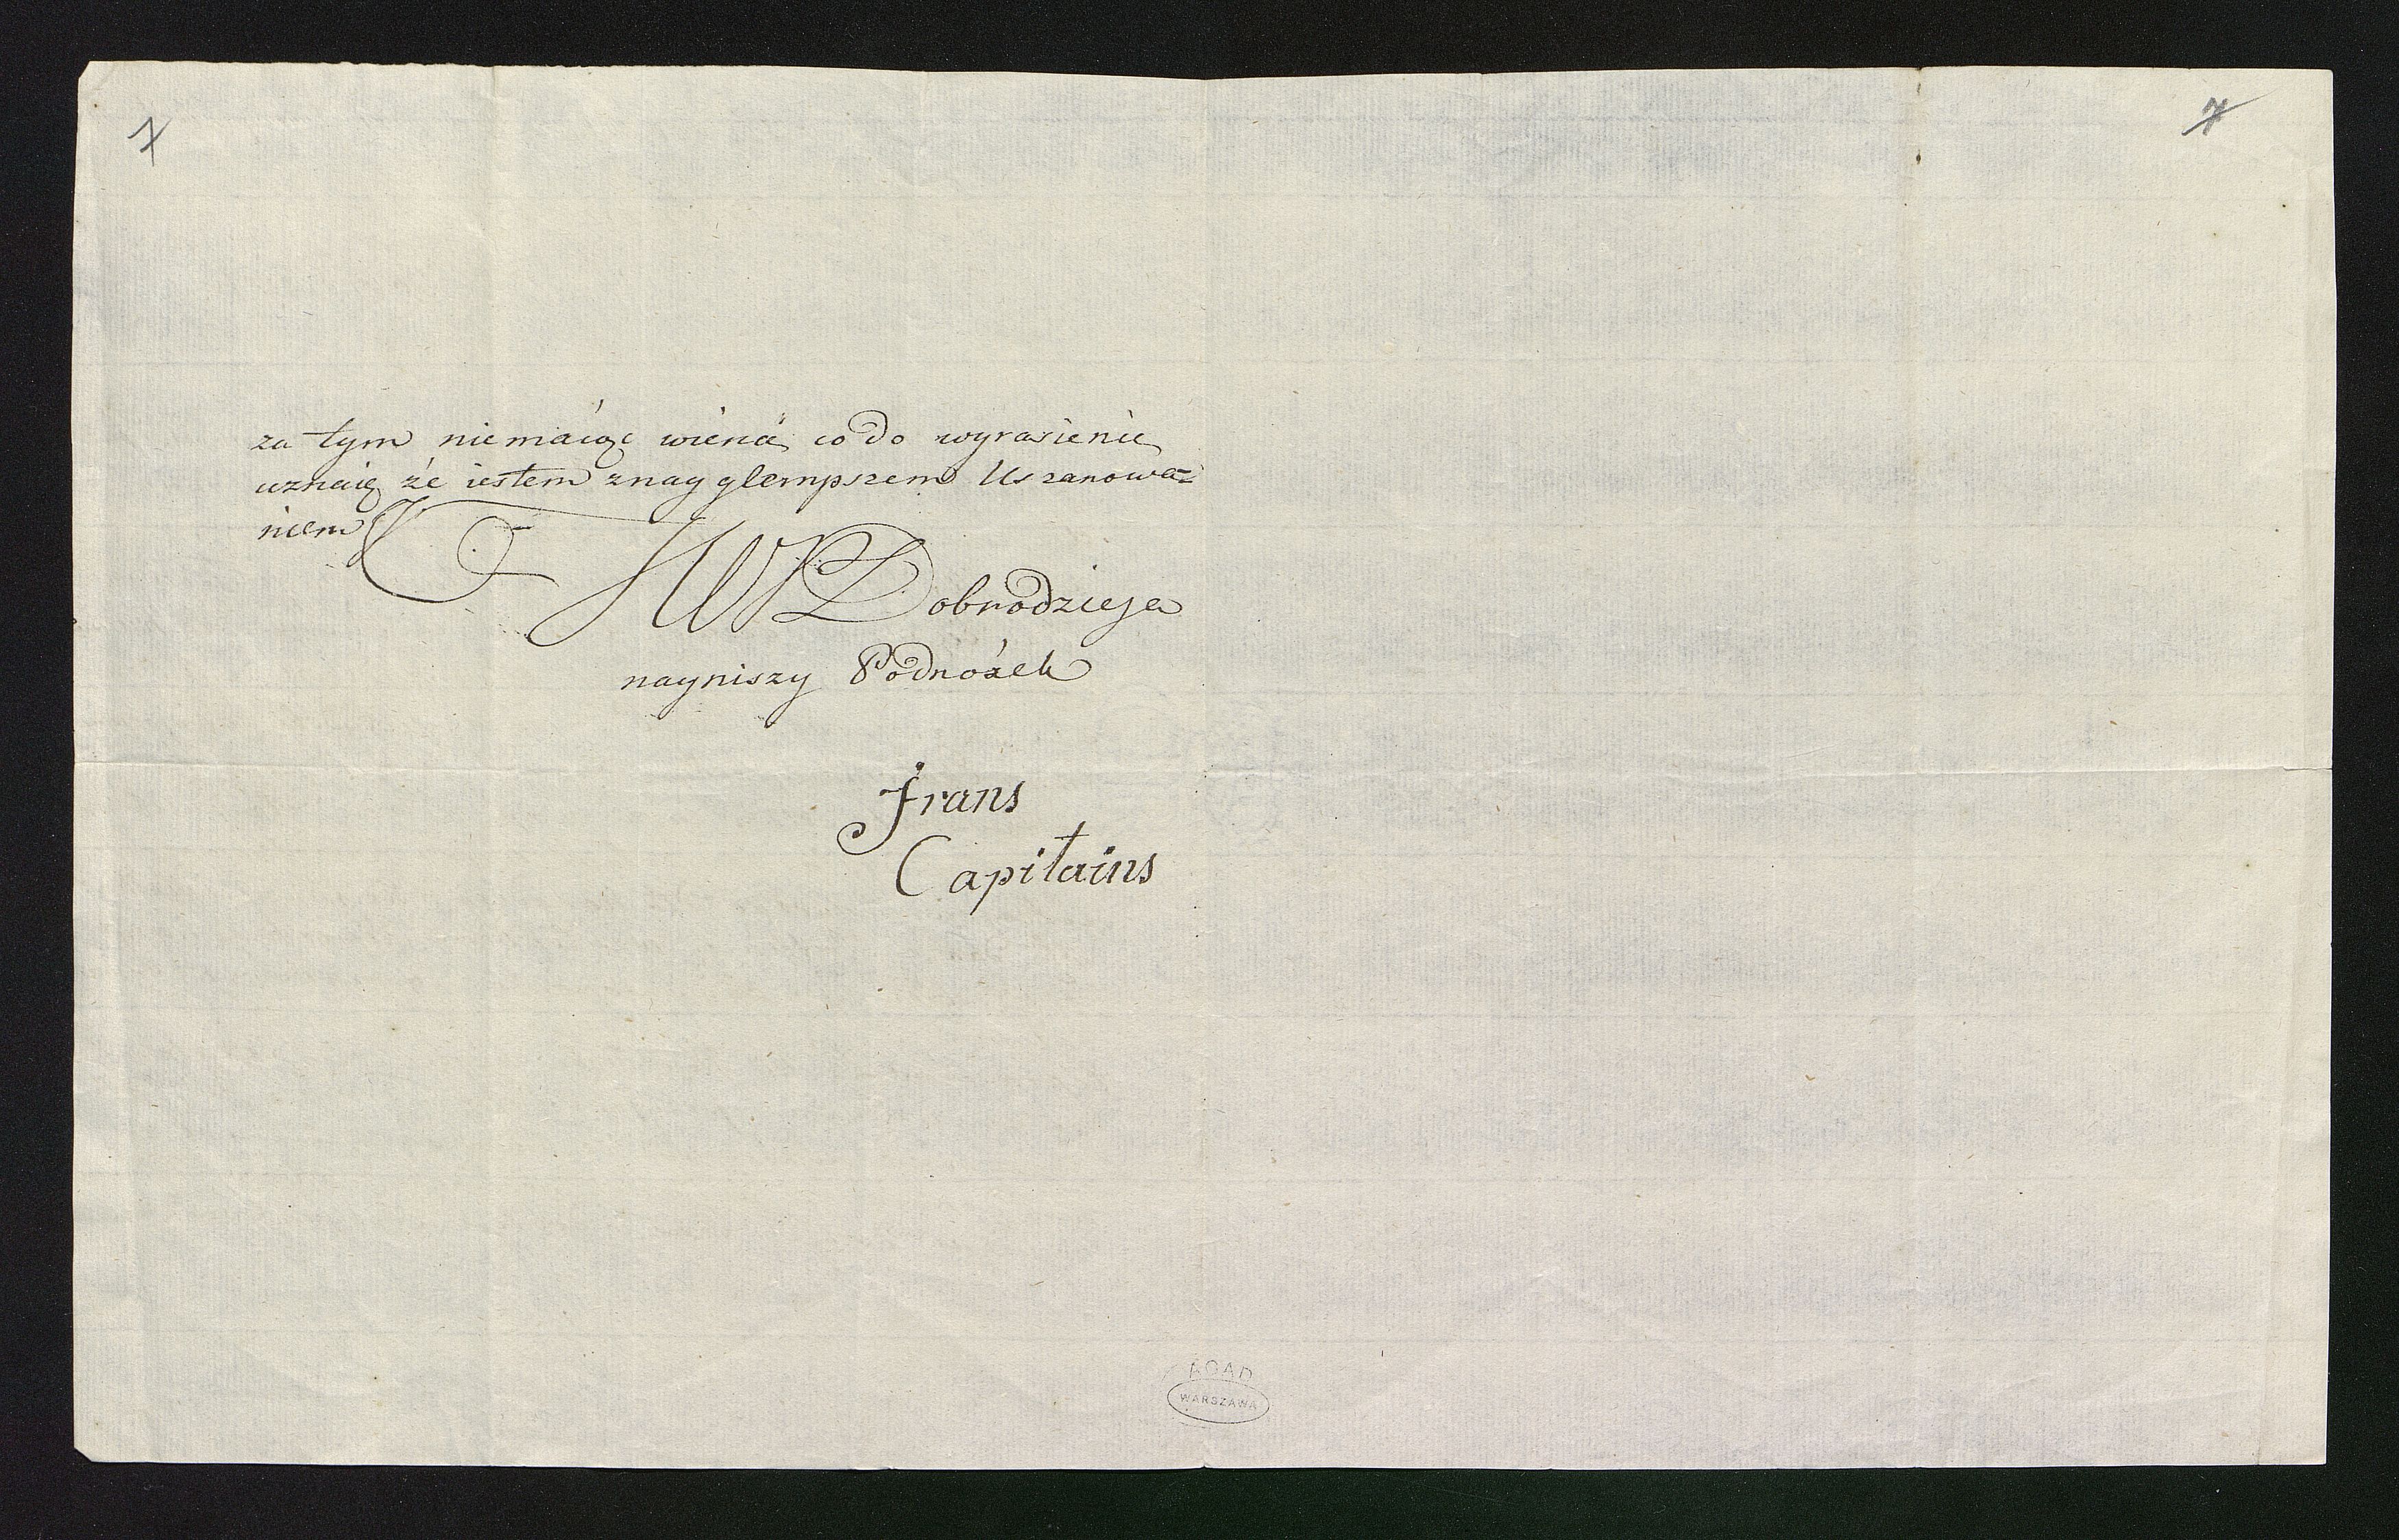 7
7
za tym niemaiąc wiencÿ co do wyrasienie
uznaię że iestem znayglempszem Uszanowa=
niem
JWPDobrodzieja
nayniszy Podnóżek
Frans
Capitains
AGAD
WARSZAWA